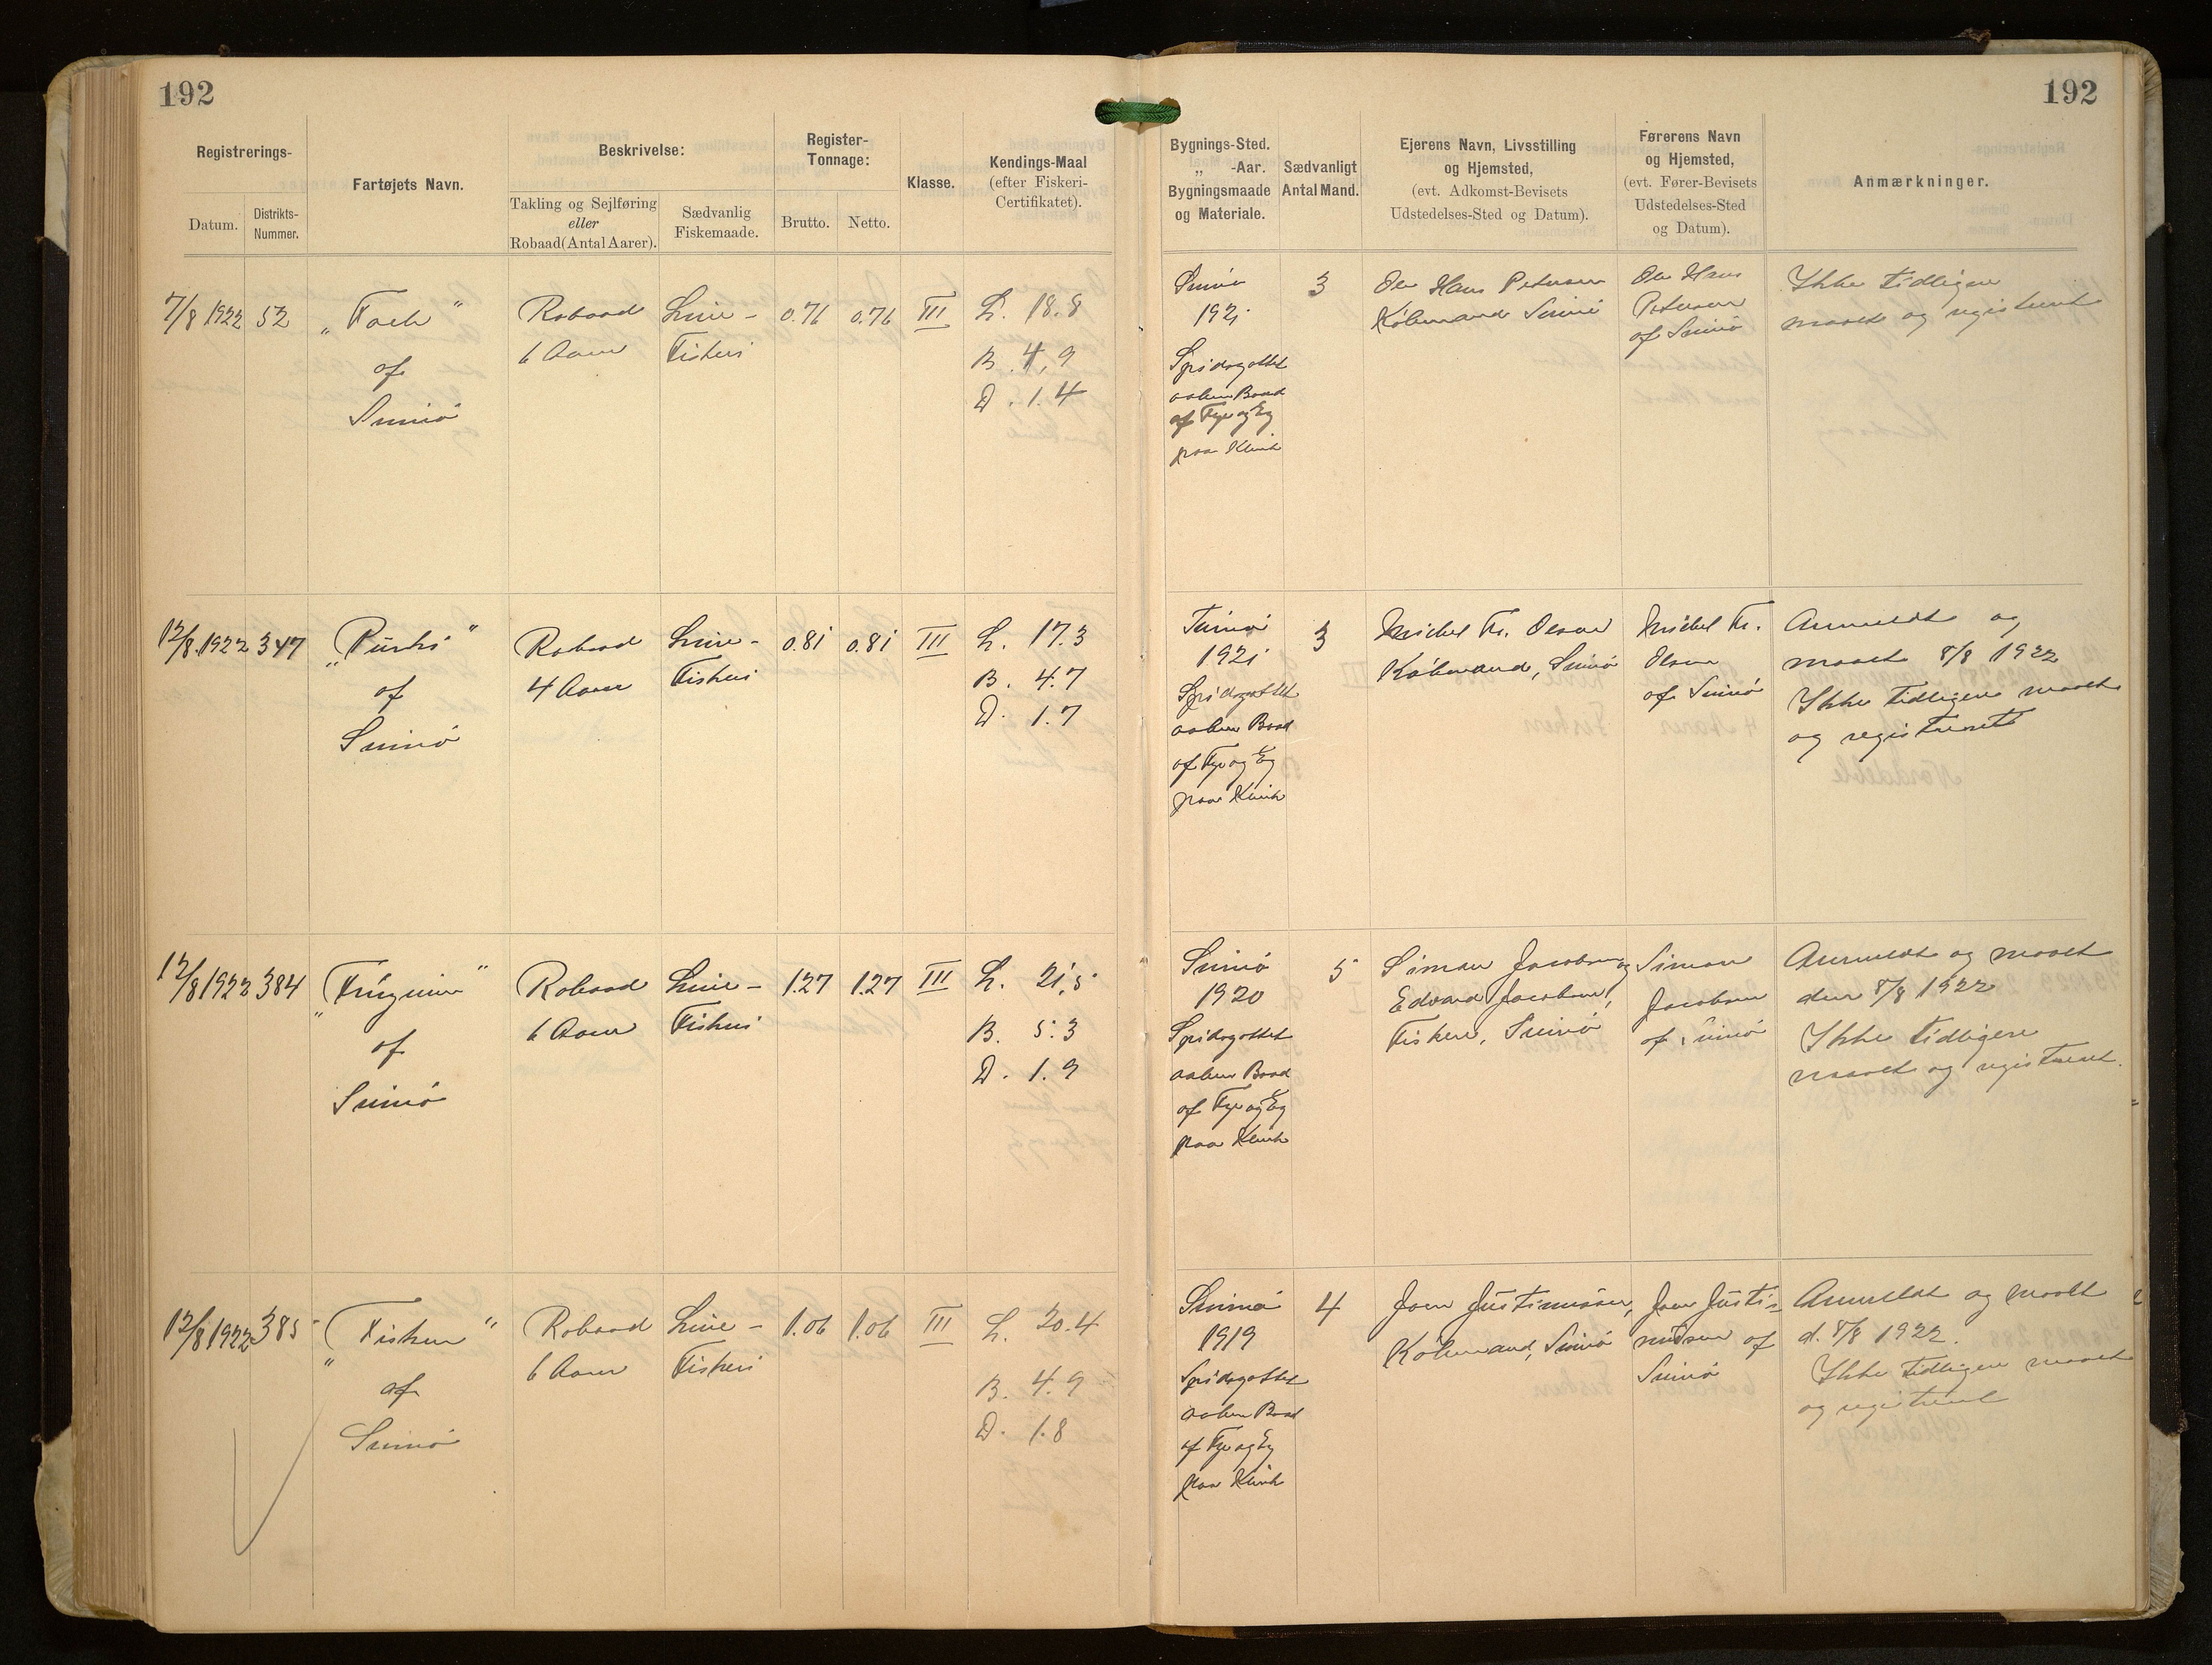 192
192
Registrerings-
Datum.
Distrikts-
Nummer.
Fartøjets Navn.
Beskrivelse:
Takling og Sejlføring
eller
Robaad (Antal Aarer).
Sædvanlig
Fiskemaade.
Register-
Tonnage:
Brutto.
Netto.
Klasse.
Kendings-Maal
(efter Fiskeri-
Certifikatet).
Bygnings-Sted.
„ -Aar.
Bygningsmaade
og Materiale.
Sædvanligt
Antal Mand.
Ejerens Navn, Livsstilling
og Hjemsted,
(evt. Adkomst-Bevisets
Udstedelses-Sted og Datum).
Førerens Navn
og Hjemsted,
(evt. Fører-Bevisets
Udstedelses-Sted
og Datum).
Anmærkninger.
7/8 1922
52
„Foch"
of
Sumö
Robaad
6 Aarer
Line-
Fiskeri
0.76
0.76
III
L. 18.8
B. 4.9
D. 1.4
Sumö
1921
Spidsgattet
aaben Baad
af Fyr og Eg
paa Klink
3
Ole Hans Petersen
Købmand Sumö
Ole Hans
Petersen
af Sumö
Ikke tidligere
maalt og registreret
12/8.1922
347
of
Sumö
Robaad
4 Aarer
Line-
Fiskeri
0.81
0.81
III
L. 17.3
B. 4.7
D. 1.7
Sumö
1921
Spidsgattet
aaben Baad
af Fyr og Eg
paa Klink
3
Michel Fr. Olsen
Købmand, Sumö
Michel Fr.
Olsen
af Sumö
Anmeldt og
maalt 8/8 1922
Ikke tidligere maalt
og registreret
12/8 1922
384
of
Sumö
Robaad
6 Aarer
Line-
Fiskeri
1.27
1.27
III
L. 21,5
B. 5.3
D. 1.9
Sumö
1920
Spidsgattet
aaben Baad
af Fyr og Eg
paa Klink
5
Simon Jacobsen og
Edvard Jacobsen,
Fiskere, Sumö
Simon
Jacobsen
af Sumö
Anmeldt og maalt
den 8/8 1922
Ikke tidligere
maalt og registreret.
12/8 1922
385
„Fisken"
af
Sumö
Robaad
6 Aarer
Line-
Fiskeri
1.06
1.06
III
L. 20.4
B. 4.9
D. 1.8
Sumö
1919
Spidsgattet
aaben Baad
af Fyr og Eg
paa Klink
4
Joen Justinussen,
Købmand, Sumö
Joen Justi-
nussen af
Sumö
Anmeldt og maalt
d. 8/8 1922.
Ikke tidligere maalt
og registreret